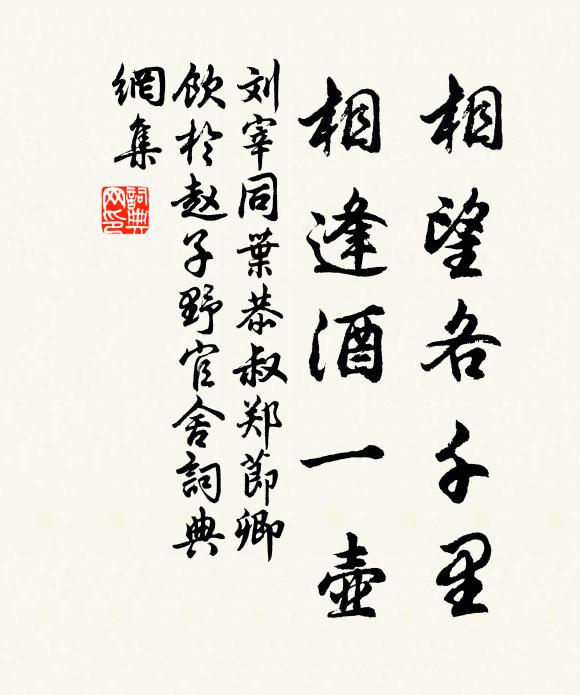 相望各千里
相逢酒一壺
刘宰同葉恭叔郑節卿
飲於赵子野官舍詞典
網集
詞典
网印